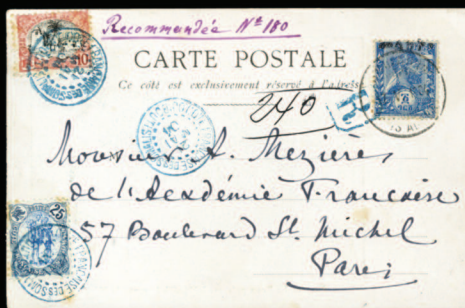 Recommandée Nº 180
CARTE POSTALE
Ce côté est exclusivement réservé à l'adresse
240
R
Monsieur A. Mezières
de l'Académie Française
57 Boulevard St. Michel
Paris
10
25